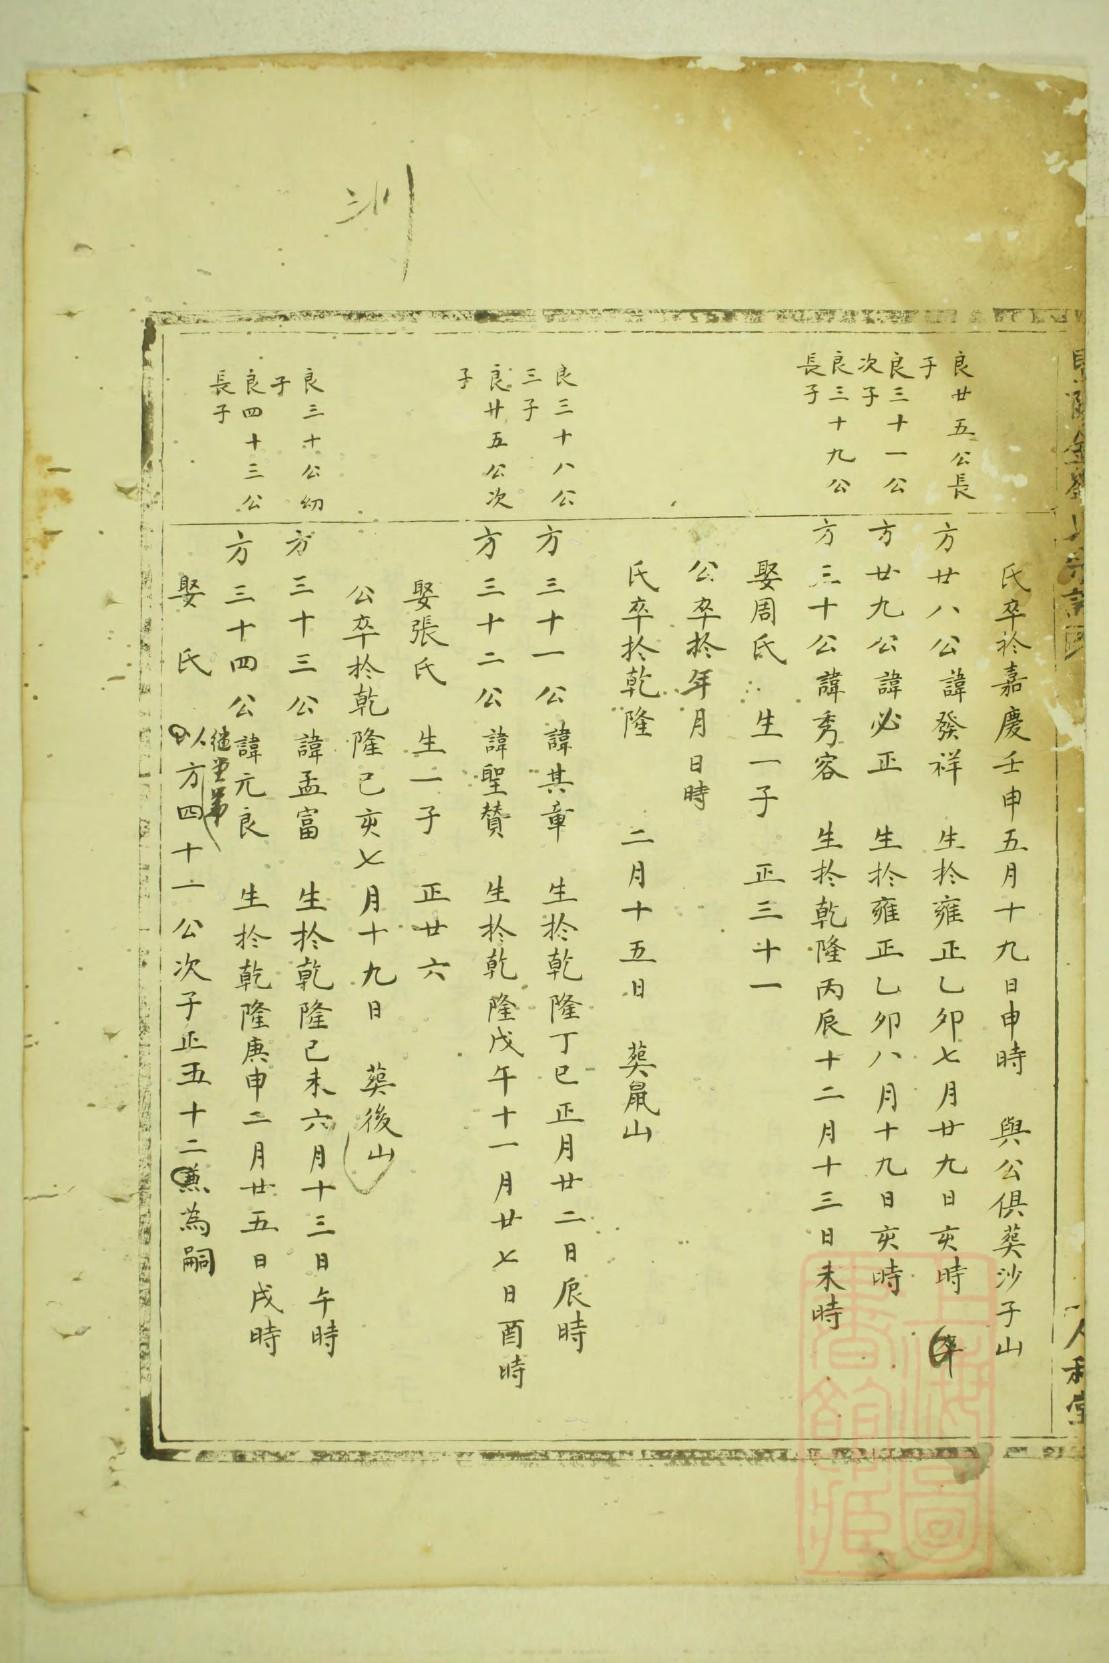 氏卒於嘉慶壬申五月十九日申時 與公俱葬沙子山
良廿五公長子
方廿八公諱發祥 生於雍正乙卯七月廿九日亥時 卒
良三十一公次子
方廿九公諱必正 生於雍正乙卯八月十九日亥時
良三十九公長子
方三十公諱秀容 生於乾隆丙辰十二月十三日未時
娶周氏 生一子 正三十一
公卒於年月日時
氏卒於乾隆 二月十五日 葬鼠山
良三十八公三子
方三十一公諱其章 生於乾隆丁巳正月廿二日辰時
良廿五公次子
方三十二公諱聖贊 生於乾隆戊午十一月廿七日酉時
娶張氏 生一子 正廿六
公卒於乾隆己亥七月十九日 葬後山
良三十公幼子
方三十三公諱孟富 生於乾隆己未六月十三日午時
良四十三公長子
方三十四公諱元良 生於乾隆庚申二月廿五日戌時
继堂弟
娶 氏 以方四十一公次子正五十二兼為嗣
人和堂
上海圖書館藏